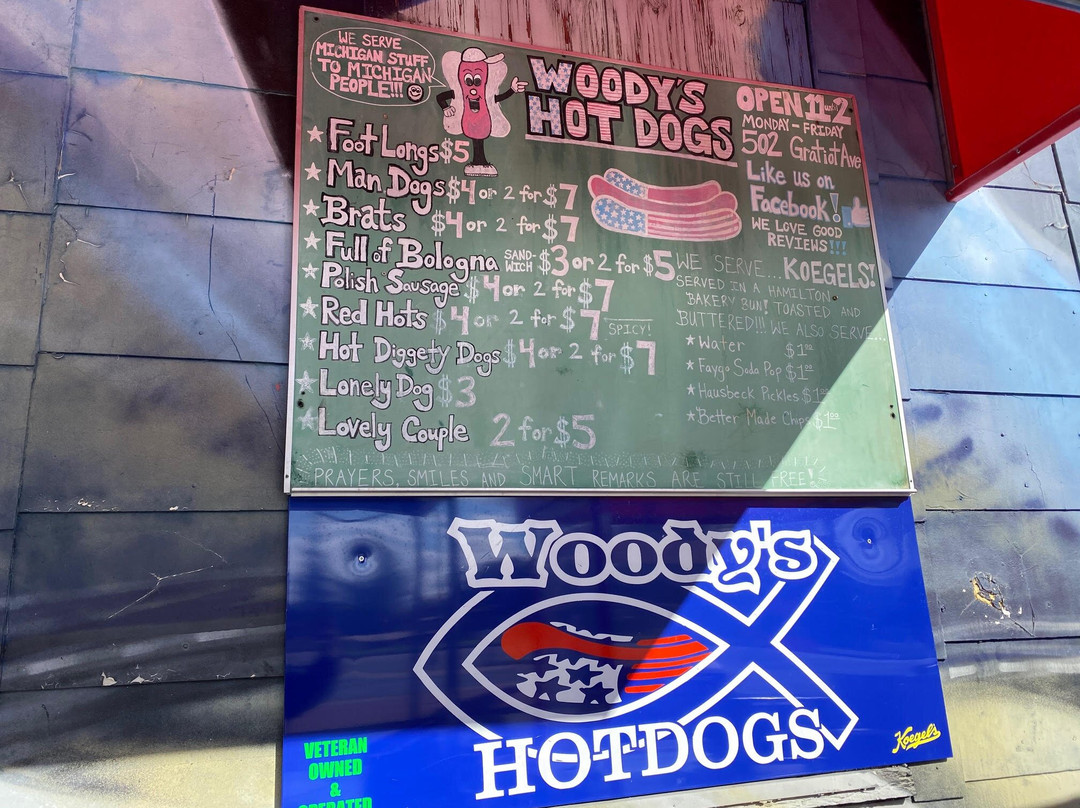 WE SERVE
MICHIGAN STUFF
TO MICHIGAN
PEOPLE!!!
WOODY'S
HOT DOGS
OPEN 11 until 2
MONDAY - FRIDAY
502 Gratiot Ave
Like us on
Facebook!
WE LOVE GOOD
REVIEWS!!!
★ Foot Longs $5
★ Man Dogs $4 or 2 for $7
★ Brats $4 or 2 for $7
★ Full of Bologna SAND-WICH $3 or 2 for $5
★ Polish Sausage $4 or 2 for $7
★ Red Hots $4 or 2 for $7 SPICY!
★ Hot Diggety Dogs $4 or 2 for $7
★ Lonely Dog $3
★ Lovely Couple 2 for $5
WE SERVE... KOEGELS!
SERVED IN A HAMILTON
BAKERY BUN! TOASTED AND
BUTTERED!!! WE ALSO SERVE...
★ Water $1.00
★ Faygo Soda Pop $1.00
★ Hausbeck Pickles $1.00
★ Better Made Chips $1.00
PRAYERS, SMILES AND SMART REMARKS ARE STILL FREE!
Woody's
HOTDOGS
VETERAN
OWNED
&
OPERATED
Koegel's